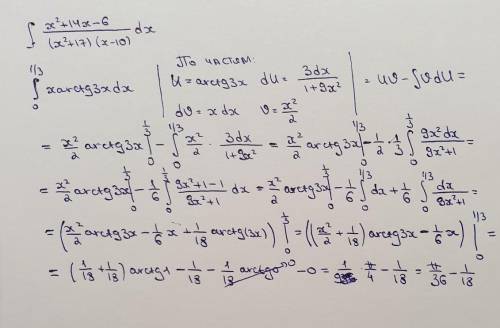 ∫ (x²+14x-6)/((x²+17)(x-10)) dx
∫₀^{1/3} x arctg3x dx | По частям: U = arctg3x dU = 3dx/(1+9x²) dV = x dx V = x²/2 | = UV - ∫VdU =
= x²/2 arctg3x |₀^{1/3} - ∫₀^{1/3} x²/2 · 3dx/(1+9x²) = x²/2 arctg3x |₀^{1/3} - 1/2 · 1/3 ∫₀^{1/3} 9x²dx/(9x²+1) =
= x²/2 arctg3x |₀^{1/3} - 1/6 ∫₀^{1/3} (9x²+1-1)/(9x²+1) dx = x²/2 arctg3x |₀^{1/3} - 1/6 ∫₀^{1/3} dx + 1/6 ∫₀^{1/3} dx/(9x²+1) =
= (x²/2 arctg3x - 1/6 x + 1/18 arctg(3x)) |₀^{1/3} = ((x²/2 + 1/18) arctg3x - 1/6 x) |₀^{1/3} =
= (1/18 + 1/18) arctg1 - 1/18 - 1/18 arctg0 →0 - 0 = 1/9 · π/4 - 1/18 = π/36 - 1/18